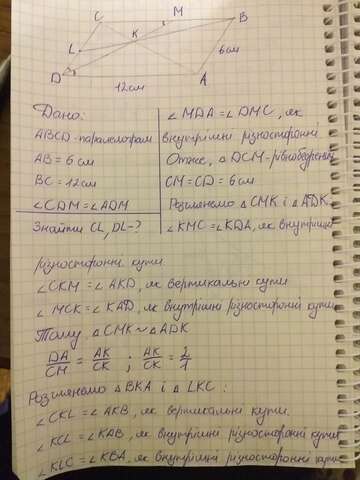 C M B
L K
6 см
D 12 см A
Дано:
ABCD - паралелограм
AB = 6 см
BC = 12 см
∠CDM = ∠ADM
Знайти CL, DL - ?
∠MDA = ∠DMC, як
внутрішні різносторонні
Отже, △DCM - рівнобедрений
CM = CD = 6 см
Розглянемо △CMK і △ADK.
∠KMC = ∠KDA, як внутрішні
різносторонні кути
∠CKM = ∠AKD, як вертикальні кути
∠MCK = ∠KAD, як внутрішні різносторонні кути
Тому △CMK ~ △ADK
DA/CM = AK/CK ; AK/CK = 2/1
Розглянемо △BKA і △LKC:
∠CKL = ∠AKB, як вертикальні кути.
∠KCL = ∠KAB, як внутрішні різносторонні кути
∠KLC = ∠KBA, як внутрішні різносторонні кути